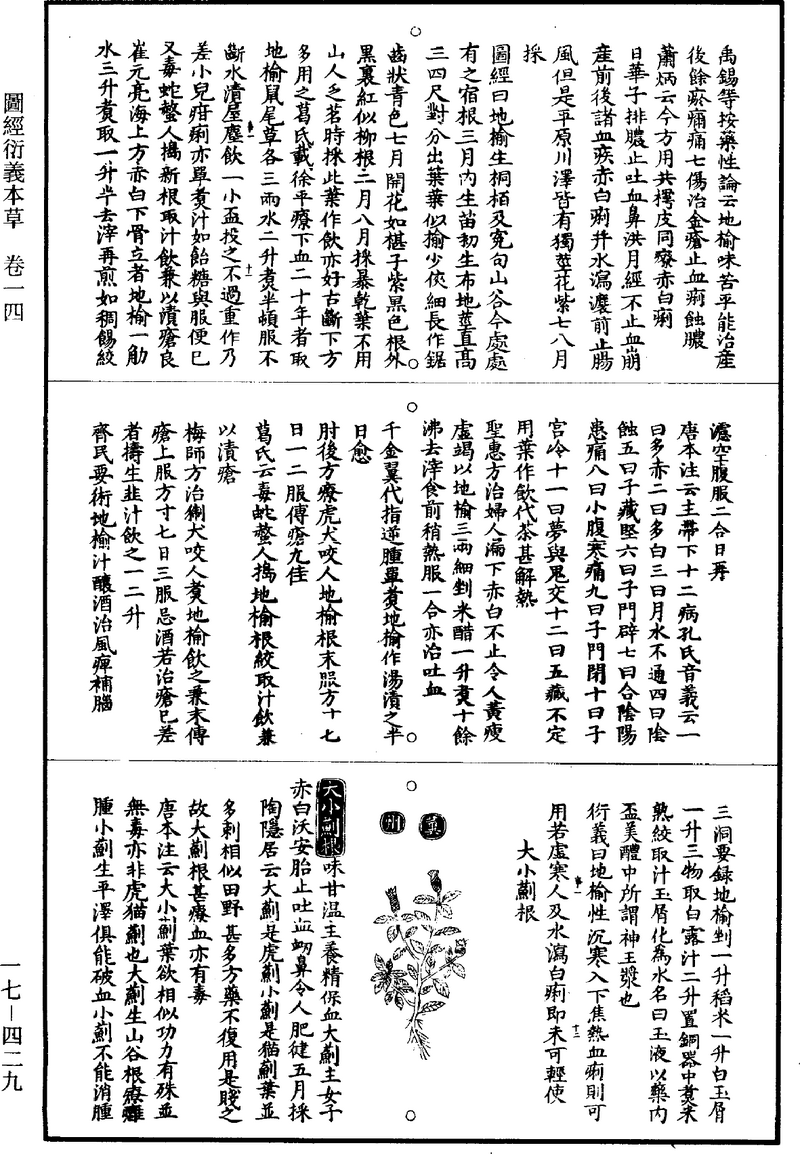 圖經衍義本草　卷一四
禹錫等按藥性論云地榆味苦平能治產
後餘瘀疼痛七傷治金瘡止血痢蝕膿
蕭炳云今方用共樗皮同療赤白痢
日華子排膿止吐血鼻洪月經不止血崩
產前後諸血疾赤白痢并水瀉濃煎止腸
風但是平原川澤皆有獨莖花紫七八月
採
圖經曰地榆生桐栢及冤句山谷今處處
有之宿根三月內生苗初生布地莖直高
三四尺對分出葉葉似榆少狹細長作鋸
齒狀青色七月開花如椹子紫黑色根外
黑裏紅似柳根二月八月採暴乾葉不用
山人乏茗時採此葉作飲亦好古斷下方
多用之葛氏載徐平療下血二十年者取
地榆鼠尾草各三兩水二升煑半頓服不
斷水漬屋塵飲一小盃投之不過重作乃
差小兒疳痢亦單煑汁如飴糖與服便已
又毒蛇螫人搗新根取汁飲兼以漬瘡良
崔元亮海上方赤白下骨立者地榆一觔
水三升煑取一升半去滓再煎如稠餳絞
濾空腹服二合日再
唐本注云主帶下十二病孔氏音義云一
曰多赤二曰多白三曰月水不通四曰陰
蝕五曰子藏堅六曰子門辟七曰合陰陽
患痛八曰小腹寒痛九曰子門閉十曰子
宮冷十一曰夢與鬼交十二曰五藏不定
用葉作飲代茶甚解熱
聖惠方治婦人漏下赤白不止令人黃瘦
虛竭以地榆三兩細剉米醋一升煑十餘
沸去滓食前稍熱服一合亦治吐血
千金翼代指逆腫單煑地榆作湯漬之半
日愈
肘後方療虎犬咬人地榆根末服方寸七
日一二服傅瘡尤佳
葛氏云毒蛇螫人搗地榆根絞取汁飲兼
以漬瘡
梅師方治猘犬咬人煑地榆飲之兼末傅
瘡上服方寸七日三服忌酒若治瘡已差
者擣生韭汁飲之一二升
齊民要術地榆汁釀酒治風痺補腦
三洞要録地榆剉一升稻米一升白玉屑
一升三物取白露汁二升置銅器中煑米
熟絞取汁玉屑化為水名曰玉液以藥內
盃美醴中所謂神王漿也
衍義曰地榆性沉寒入下焦熱血痢則可
用若虛寒人及水瀉白痢即未可輕使
大小薊根
冀
州
大小薊根味甘溫主養精保血大薊主女子
赤白沃安胎止吐血衂鼻令人肥健五月採
陶隱居云大薊是虎薊小薊是猫薊葉並
多刺相似田野甚多方藥不復用是賤之
故大薊根甚療血亦有毒
唐本注云大小薊葉欲相似功力有殊並
無毒亦非虎猫薊也大薊生山谷根療癰
腫小薊生平澤俱能破血小薊不能消腫
一七—四二九